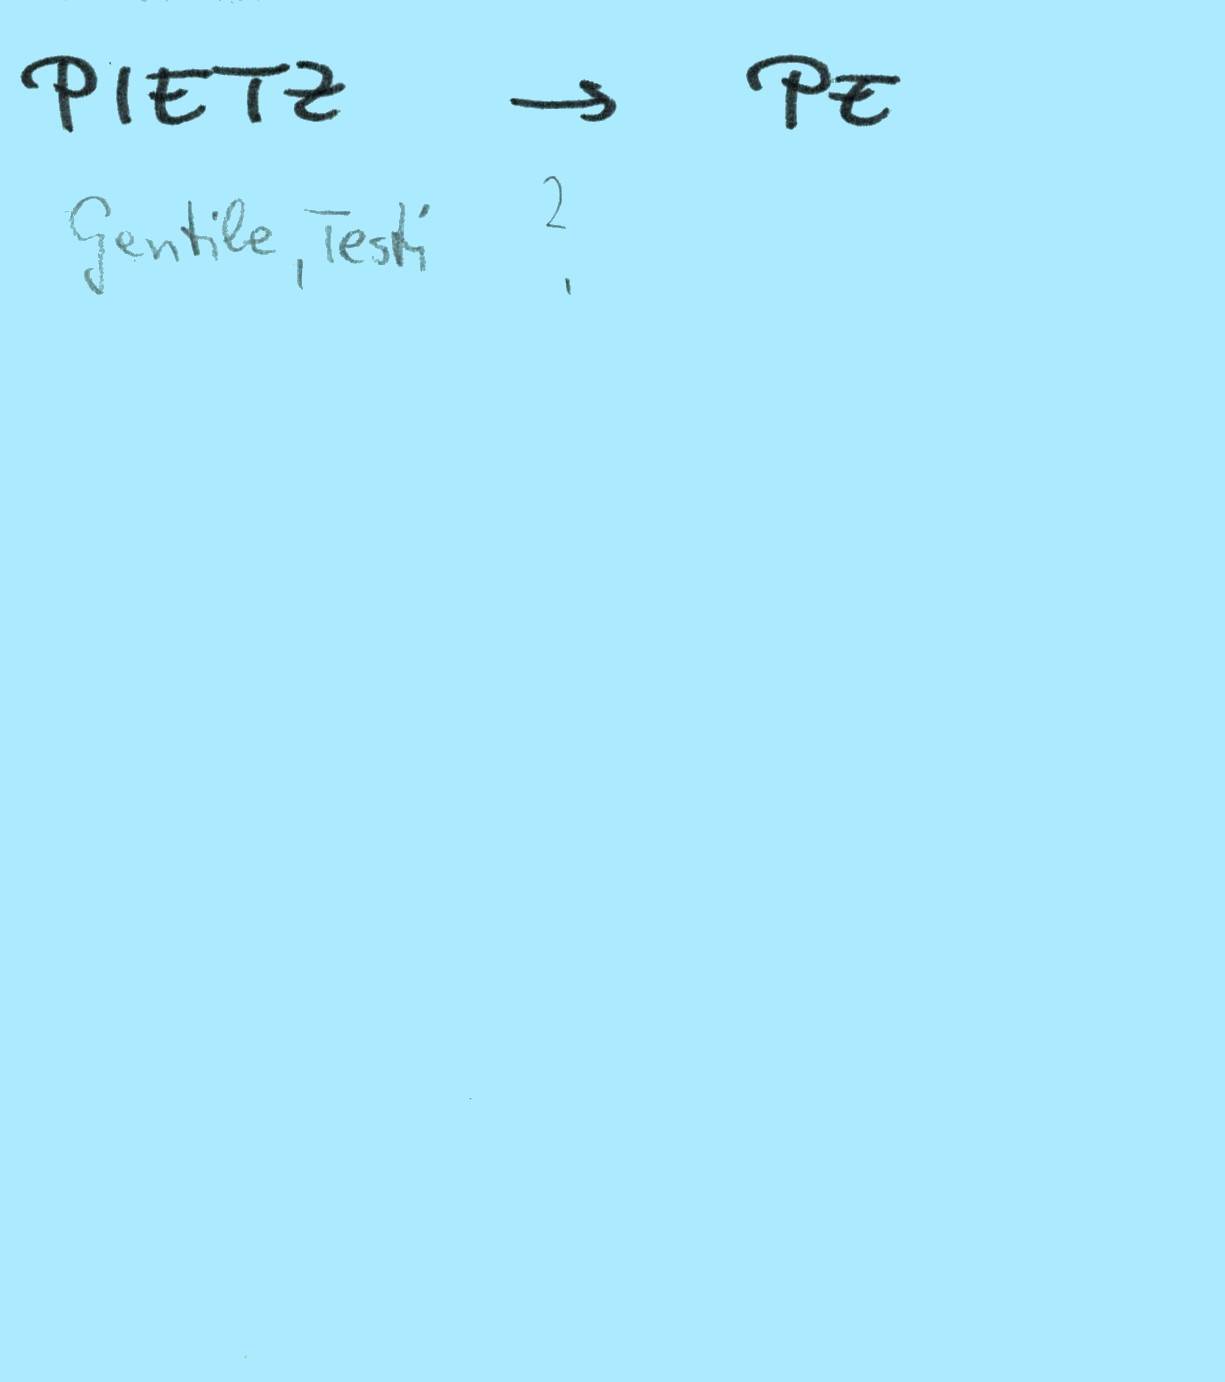 PIETZ → PE
Gentile, Testi ?